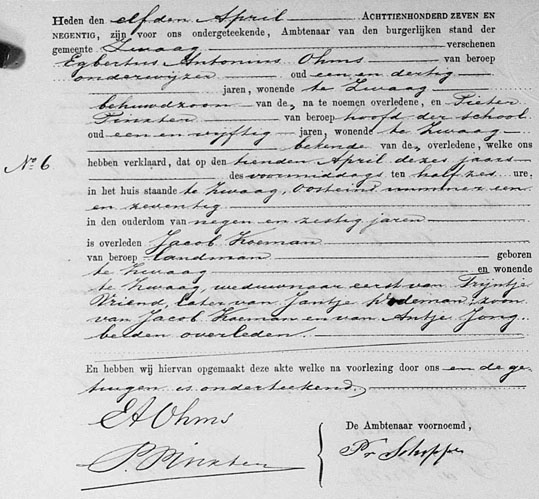 Heden den elfden April ACHTTIENHONDERD ZEVEN EN
NEGENTIG, zijn voor ons ondergeteekende, Ambtenaar van den burgerlijken stand der
gemeente Zwaag verschenen
Egbertus Antonius Ohms van beroep
onderwijzer oud een en dertig
jaren, wonende te Zwaag
behuwdzoon van de, na te noemen overledene, en Pieter
Pinxter van beroep hoofd der school
oud een en vijftig jaren, wonende te Zwaag
bekende van de, overledene, welke ons
No 6
hebben verklaard, dat op den tienden April dezes jaars
des voormiddags ten half zes ure,
in het huis staande te Zwaag, Oosteind nummer een
en zeventig
in den ouderdom van negen en zestig jaren
is overleden Jacob Koeman
van beroep landman geboren
te Zwaag en wonende
te Zwaag weduwnaar eerst van Trijntje
Vriend, later van Jantje zoon
van Jacob Koeman en van Antje Jong
beiden overleden.
En hebben wij hiervan opgemaakt deze akte welke na voorlezing door ons en de ge-
tuigen is onderteekend.
EA Ohms
P Pinxter
De Ambtenaar voornoemd,